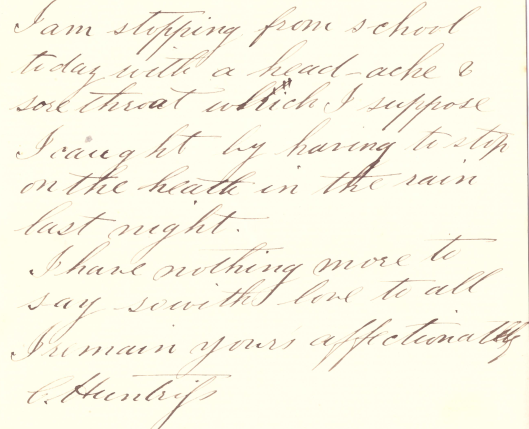 I am stopping from school
today with a head-ache &
sore throat which I suppose
I caught by having to stop
on the heath in the rain
last night.
I have nothing more to
say so with love to all
I remain yours affectionately
C. Huntriss